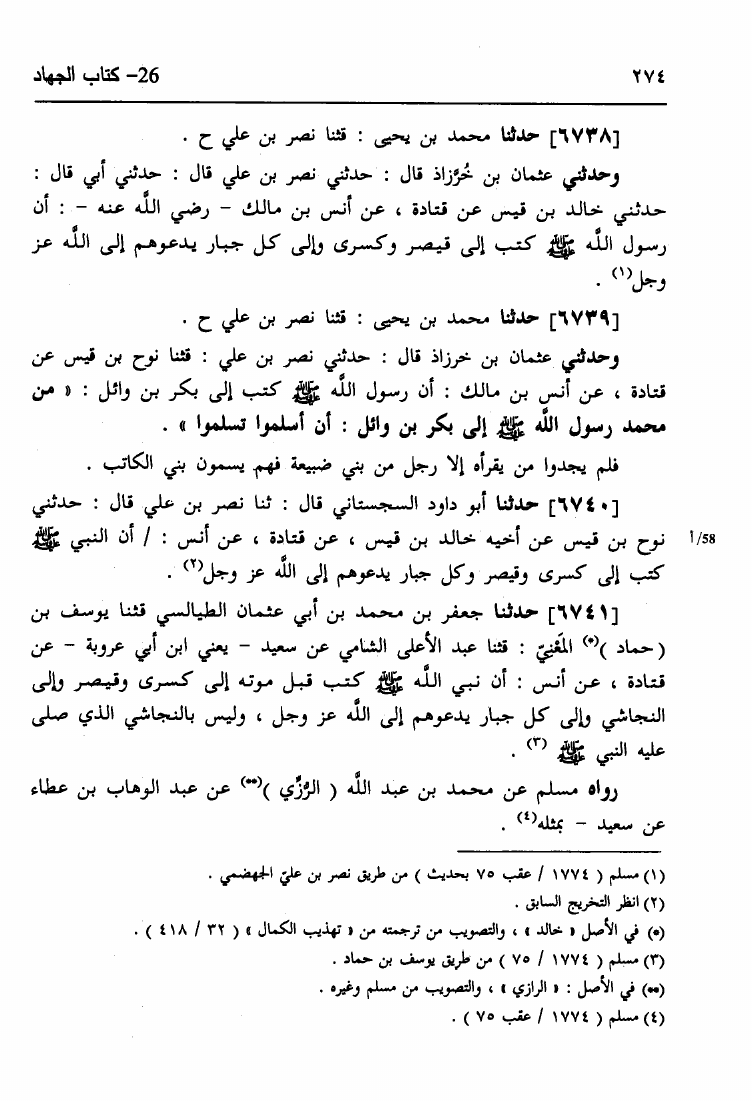 ٢٧٤
26- كتاب الجهاد
[٦٧٣٨] حدثنا محمد بن يحيى : قثنا نصر بن علي ح .
وحدثني عثمان بن خُرَّزاذ قال : حدثني نصر بن علي قال : حدثني أبي قال :
حدثني خالد بن قيس عن قتادة ، عن أنس بن مالك – رضي اللَّه عنه – : أن
رسول اللَّه ﷺ كتب إلى قيصر وكسرى وإلى كل جبار يدعوهم إلى اللَّه عز
وجل(١) .
[٦٧٣٩] حدثنا محمد بن يحيى : قثنا نصر بن علي ح .
وحدثني عثمان بن خرزاذ قال : حدثني نصر بن علي : قثنا نوح بن قيس عن
قتادة ، عن أنس بن مالك : أن رسول اللَّه ﷺ كتب إلى بكر بن وائل : « من
محمد رسول اللَّه ﷺ إلى بكر بن وائل : أن أسلموا تسلموا » .
فلم يجدوا من يقرأه إلا رجل من بني ضبيعة فهم يسمون بني الكاتب .
[٦٧٤٠] حدثنا أبو داود السجستاني قال : ثنا نصر بن علي قال : حدثني
نوح بن قيس عن أخيه خالد بن قيس ، عن قتادة ، عن أنس : / أن النبي ﷺ
58/أ
كتب إلى كسرى وقيصر وكل جبار يدعوهم إلى اللَّه عز وجل(٢) .
[٦٧٤١] حدثنا جعفر بن محمد بن أبي عثمان الطيالسي قثنا يوسف بن
( حماد )(*) المَعْنِيّ : قثنا عبد الأعلى الشامي عن سعيد – يعني ابن أبي عروبة – عن
قتادة ، عن أنس : أن نبي اللَّه ﷺ كتب قبل موته إلى كسرى وقيصر وإلى
النجاشي وإلى كل جبار يدعوهم إلى اللَّه عز وجل ، وليس بالنجاشي الذي صلى
عليه النبي ﷺ (٣) .
رواه مسلم عن محمد بن عبد اللَّه ( الرُّزِّي )(**) عن عبد الوهاب بن عطاء
عن سعيد – بمثله(٤) .
(١) مسلم ( ١٧٧٤ / عقب ٧٥ بحديث ) من طريق نصر بن عليّ الجهضمي .
(٢) انظر التخريج السابق .
(*) في الأصل « خالد » ، والتصويب من ترجمته من « تهذيب الكمال » ( ٣٢ / ٤١٨ ) .
(٣) مسلم ( ١٧٧٤ / ٧٥ ) من طريق يوسف بن حماد .
(**) في الأصل : « الرازي » ، والتصويب من مسلم وغيره .
(٤) مسلم ( ١٧٧٤ / عقب ٧٥ ) .